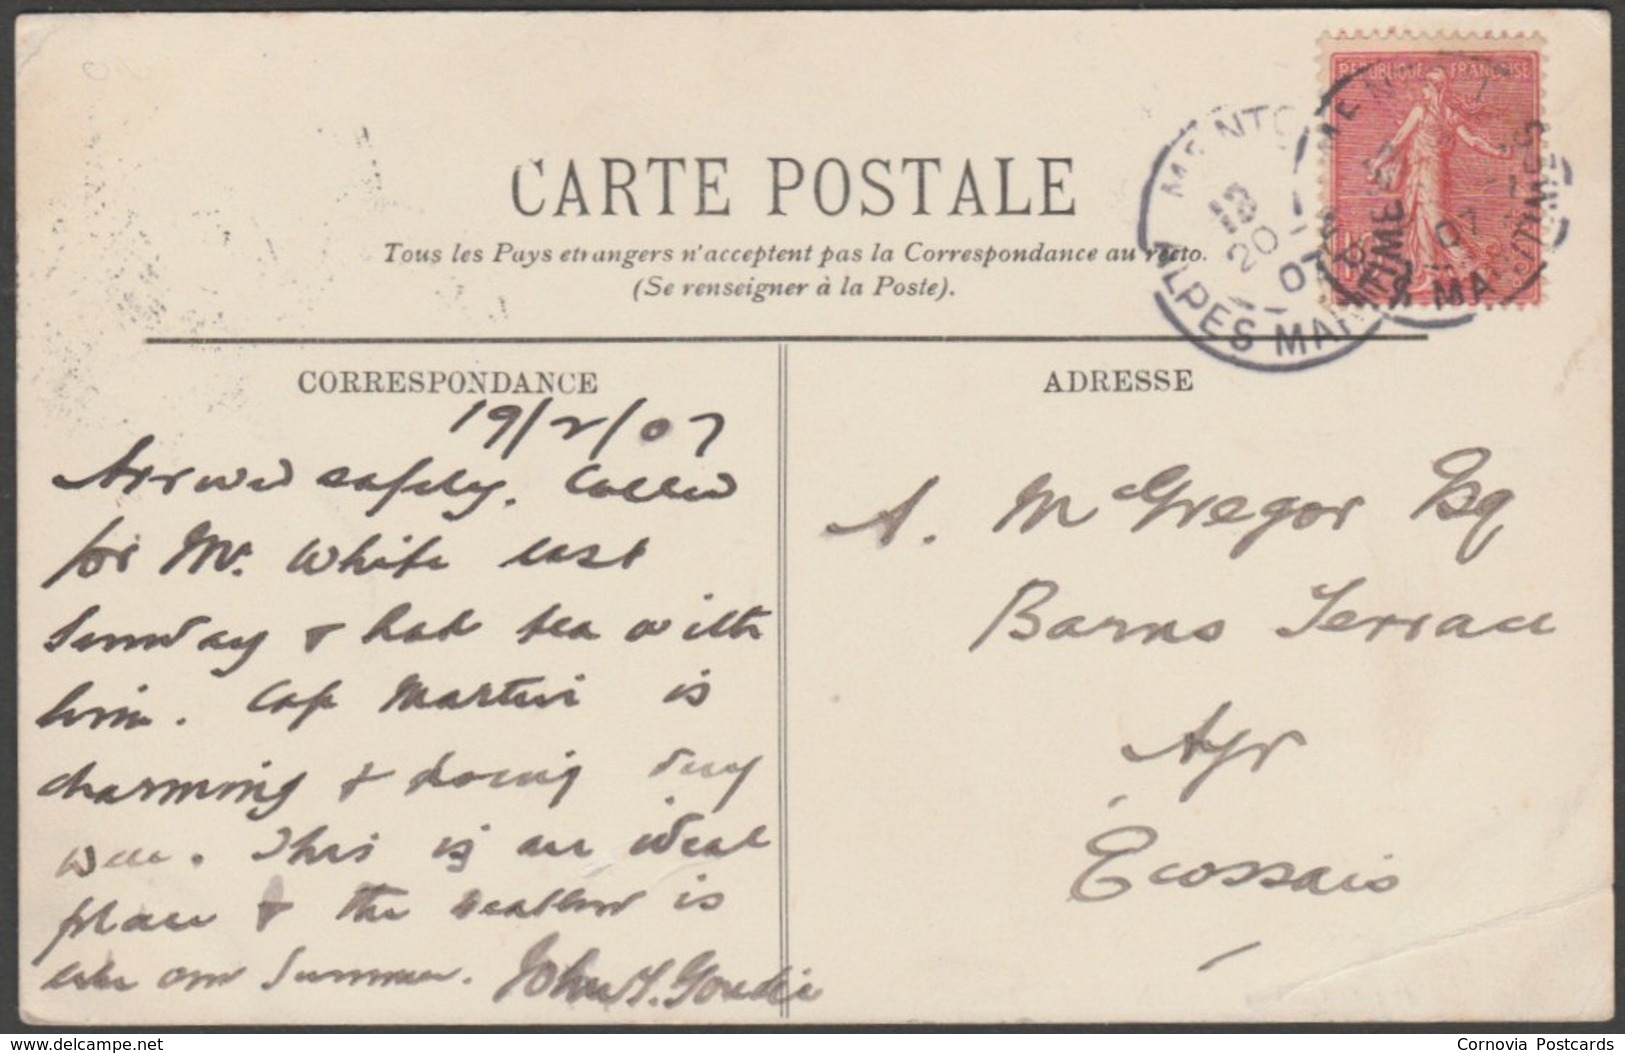 RÉPUBLIQUE FRANÇAISE
MENTON
12
20
07
ALPES MARITIMES
CARTE POSTALE
Tous les Pays etrangers n'acceptent pas la Correspondance au recto.
(Se renseigner à la Poste).
CORRESPONDANCE
19/2/07
Arrived safely. Called
for Mr. White last
Sunday & had tea with
him. Cap Martin is
charming & doing very
well. This is an ideal
place & the weather is
like our Summer. John Goudie
ADRESSE
A. McGregor Esq
Barns Terrace
Ayr
Ecossais
delcampe.net
Cornovia Postcards